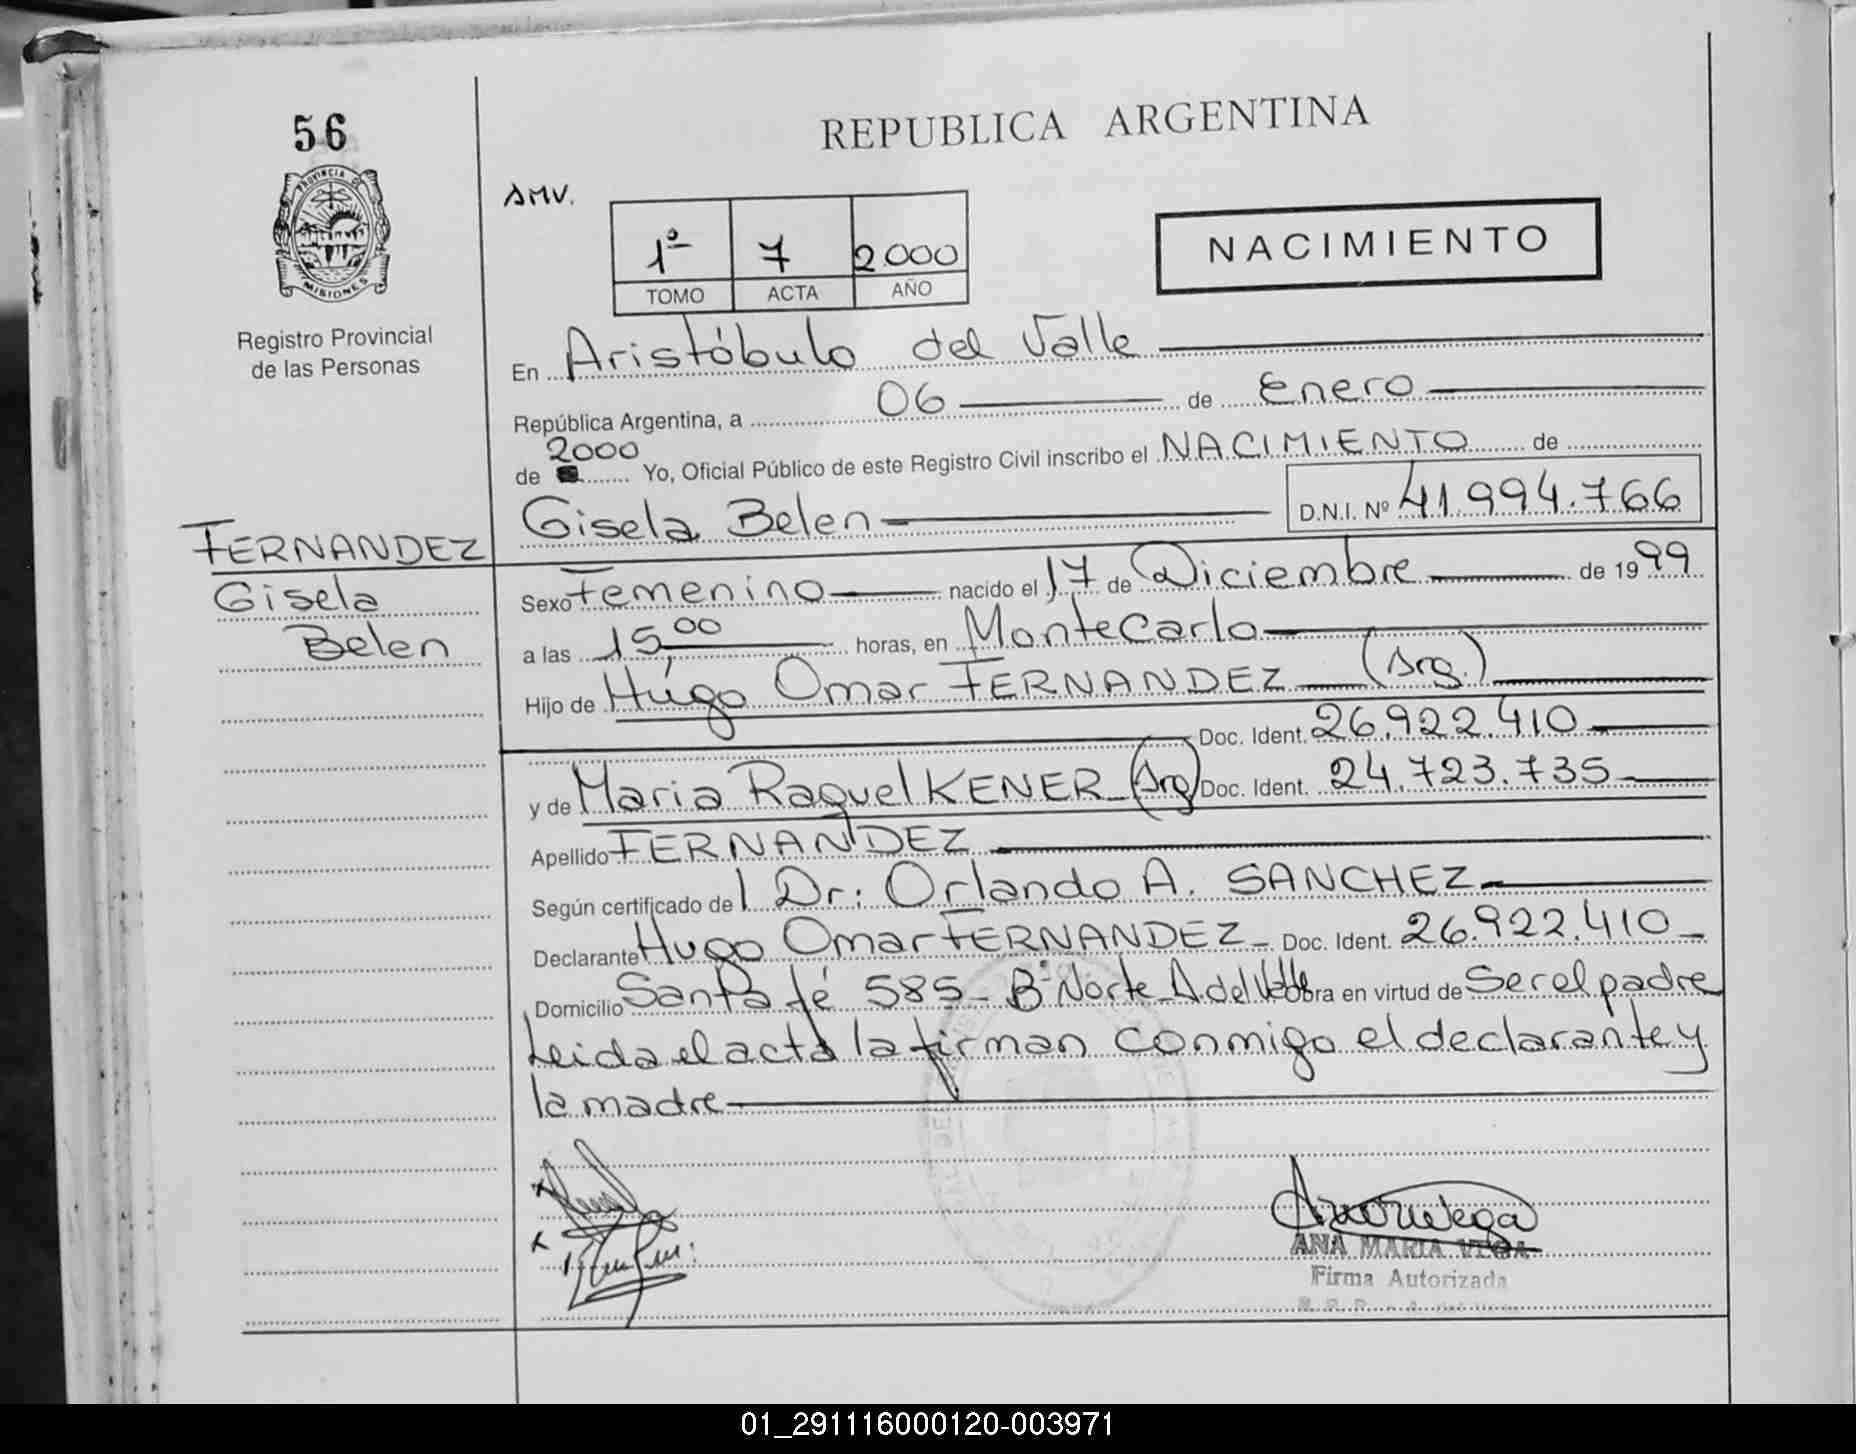 56
REPUBLICA ARGENTINA
PROVINCIA DE
MISIONES
Registro Provincial
de las Personas
AMV.
1º 7 2.000
TOMO ACTA AÑO
NACIMIENTO
En Aristóbulo del Valle
República Argentina, a 06 de Enero
de 2000 Yo, Oficial Público de este Registro Civil inscribo el NACIMIENTO de
Gisela Belen D.N.I. Nº 41.994.766
FERNANDEZ
Gisela
Belen
Sexo Femenino nacido el 17 de Diciembre de 1999
a las 15,00 horas, en MonteCarlo
Hijo de Hugo Omar FERNANDEZ (Arg.)
Doc. Ident. 26.922.410
y de Maria Raquel KENER (Arg) Doc. Ident. 24.723.735
Apellido FERNANDEZ
Según certificado del Dr: Orlando A. SANCHEZ
Declarante Hugo Omar FERNANDEZ Doc. Ident. 26.922.410
Domicilio Santa fé 585 - Bº Norte - A. del Valle Obra en virtud de Ser el padre
Leida el acta la firman conmigo el declarante y
la madre
ANA MARIA VEGA
Firma Autorizada
01_291116000120-003971